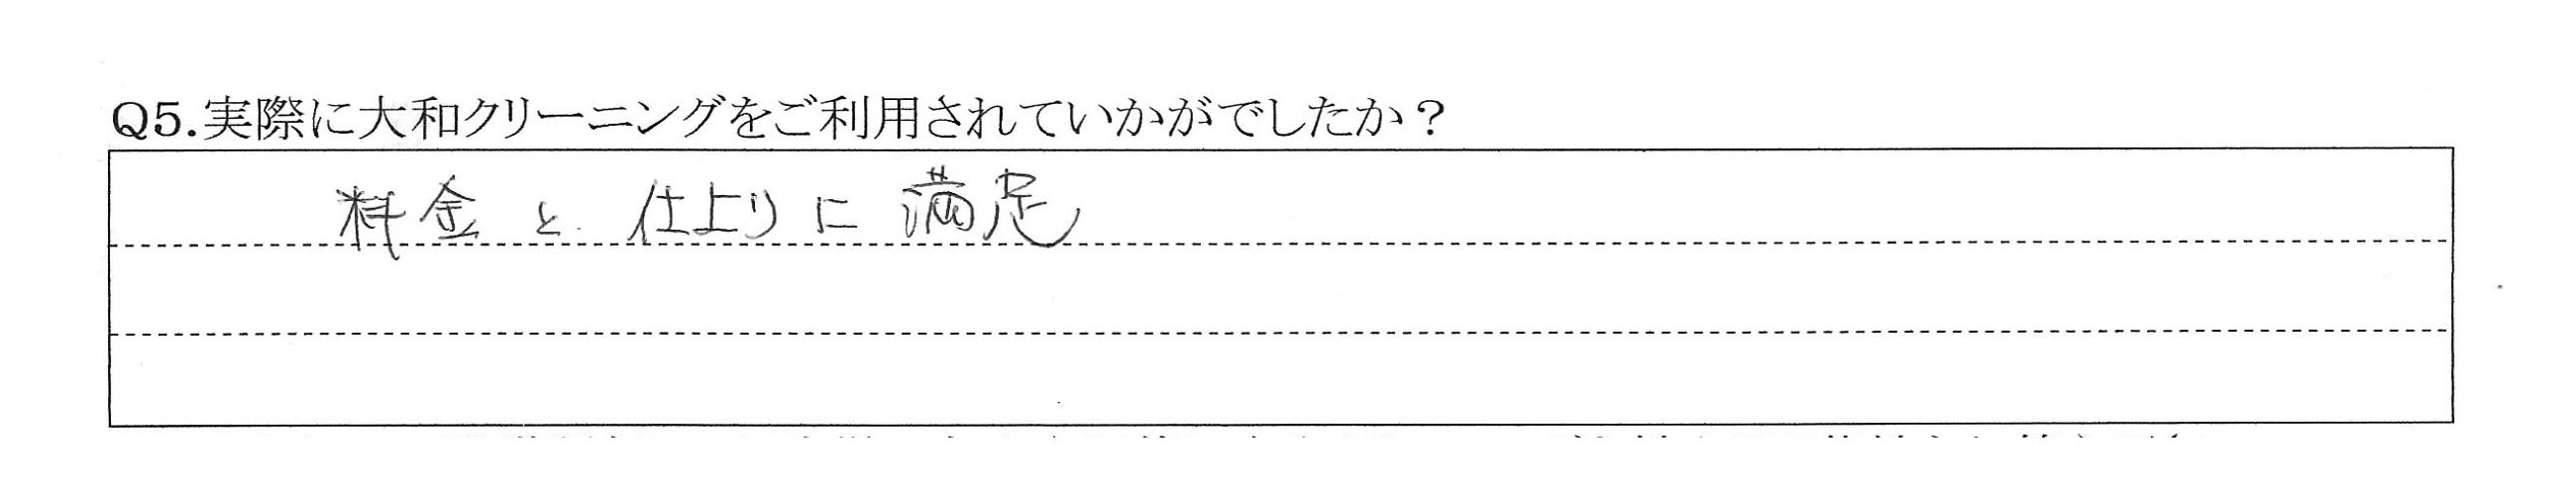 Q5.実際に大和クリーニングをご利用されていかがでしたか？
料金と仕上りに満足